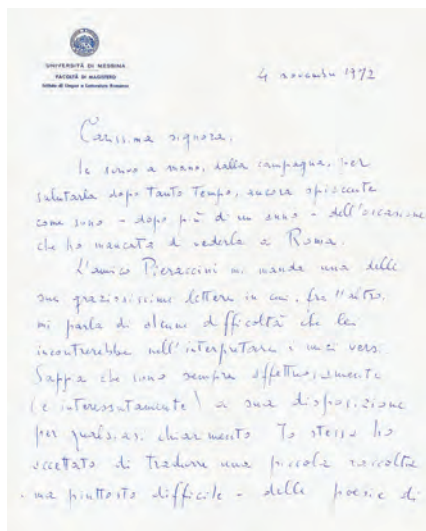 UNIVERSITÀ DI MESSINA
FACOLTÀ DI MAGISTERO
Istituto di Lingua e Letteratura Francese
4 novembre 1972
Carissima signora,
le scrivo a mano, dalla campagna, per
salutarla dopo tanto tempo, ancora spiacente
come sono - dopo più di un anno - dell'occasione
che ho mancata di vederla a Roma.
L'amico Pieraccini mi manda una delle
sue graziosissime lettere in cui, fra l'altro,
mi parla di alcune difficoltà che lei
incontrerebbe nell'interpretare i miei versi.
Sappia che sono sempre affettuosamente
(e interessatamente) a sua disposizione
per qualsiasi chiarimento Io stesso ho
accettato di tradurre una piccola raccolta
- ma piuttosto difficile - delle poesie di